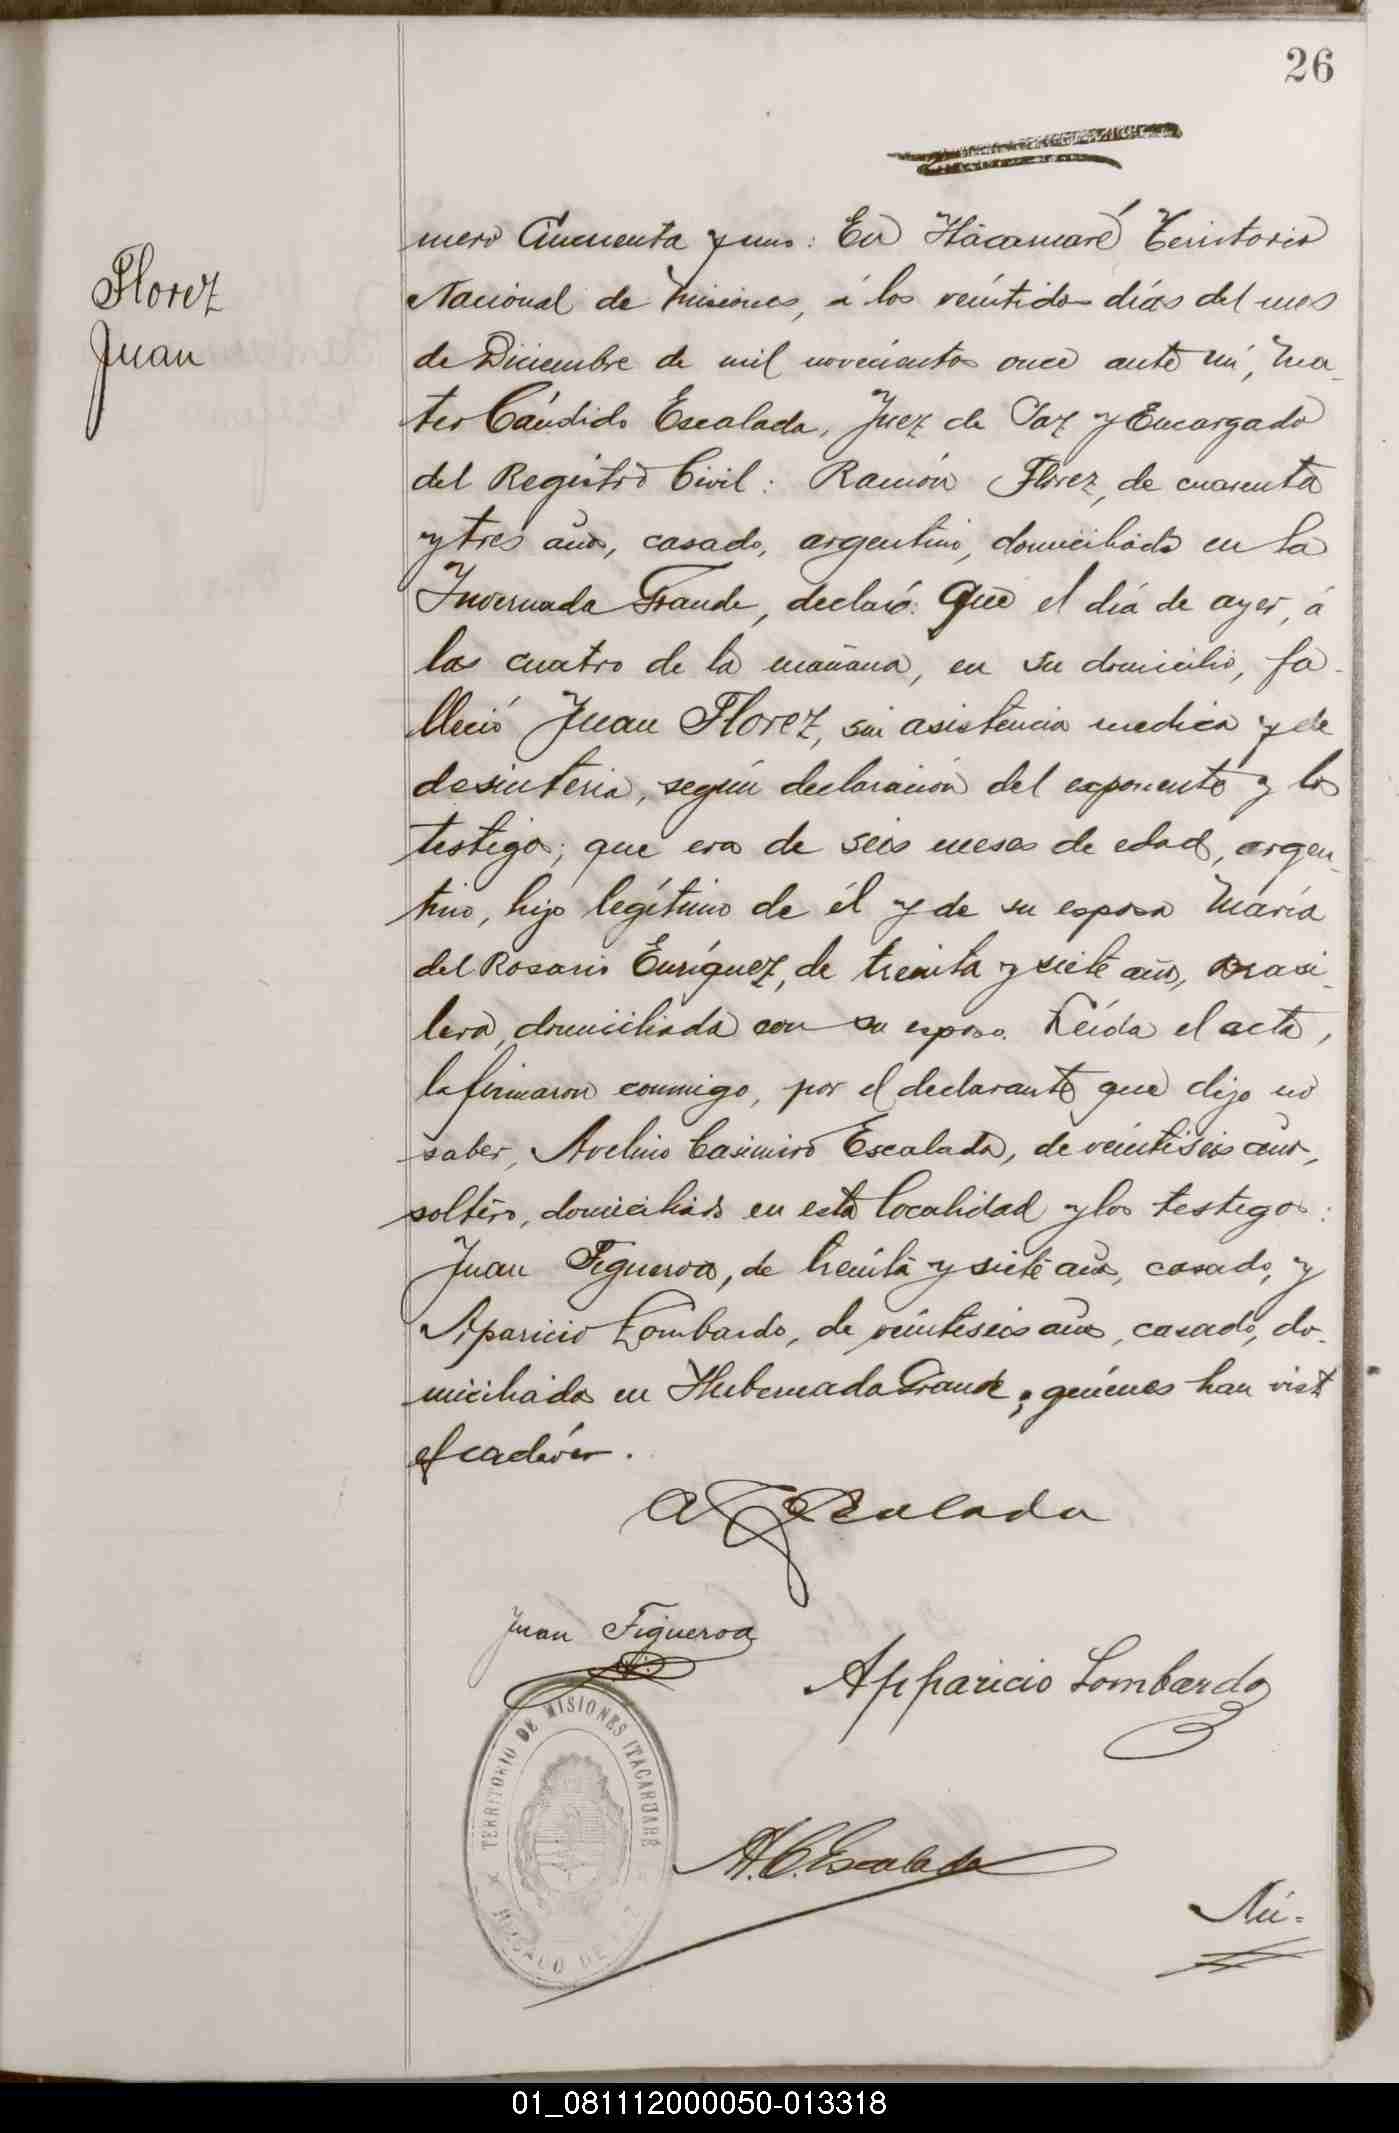 26
Florez
Juan
mero Cincuenta y uno: En Itacaruaré Territorio
Nacional de Misiones, á los veintidos días del mes
de Diciembre de mil novecientos once ante mí, Ma-
teo Cándido Escalada, Juez de Paz y Encargado
del Registro Civil: Ramón Florez, de cuarenta
y tres años, casado, argentino, domiciliado en la
Invernada Grande, declaró: Que el día de ayer, á
las cuatro de la mañana, en su domicilio, fa-
lleció Juan Florez, sin asistencia medica y de
desinteria, según declaración del exponente y los
testigos; que era de seis meses de edad, argen-
tino, hijo legítimo de él y de su esposa María
del Rosario Enríquez, de treinta y siete años, brasi-
lera, domiciliada con su esposo. Leída el acta,
la firmaron conmigo, por el declarante que dijo no
saber, Avelino Casimiro Escalada, de veintiseis años,
soltero, domiciliado en esta localidad y los testigos:
Juan Figueroa, de treinta y siete años, casado, y
Aparicio Lombardo, de veintiseis años, casado, do-
miciliados en Invernada Grande; quienes han visto
el cadáver.
A Escalada
Juan Figueroa
Apparicio Lombardo
TERRITORIO DE MISIONES ITACARUARÉ
JUZGADO DE PAZ
M.C. Escalada
Nú=
01_081112000050-013318